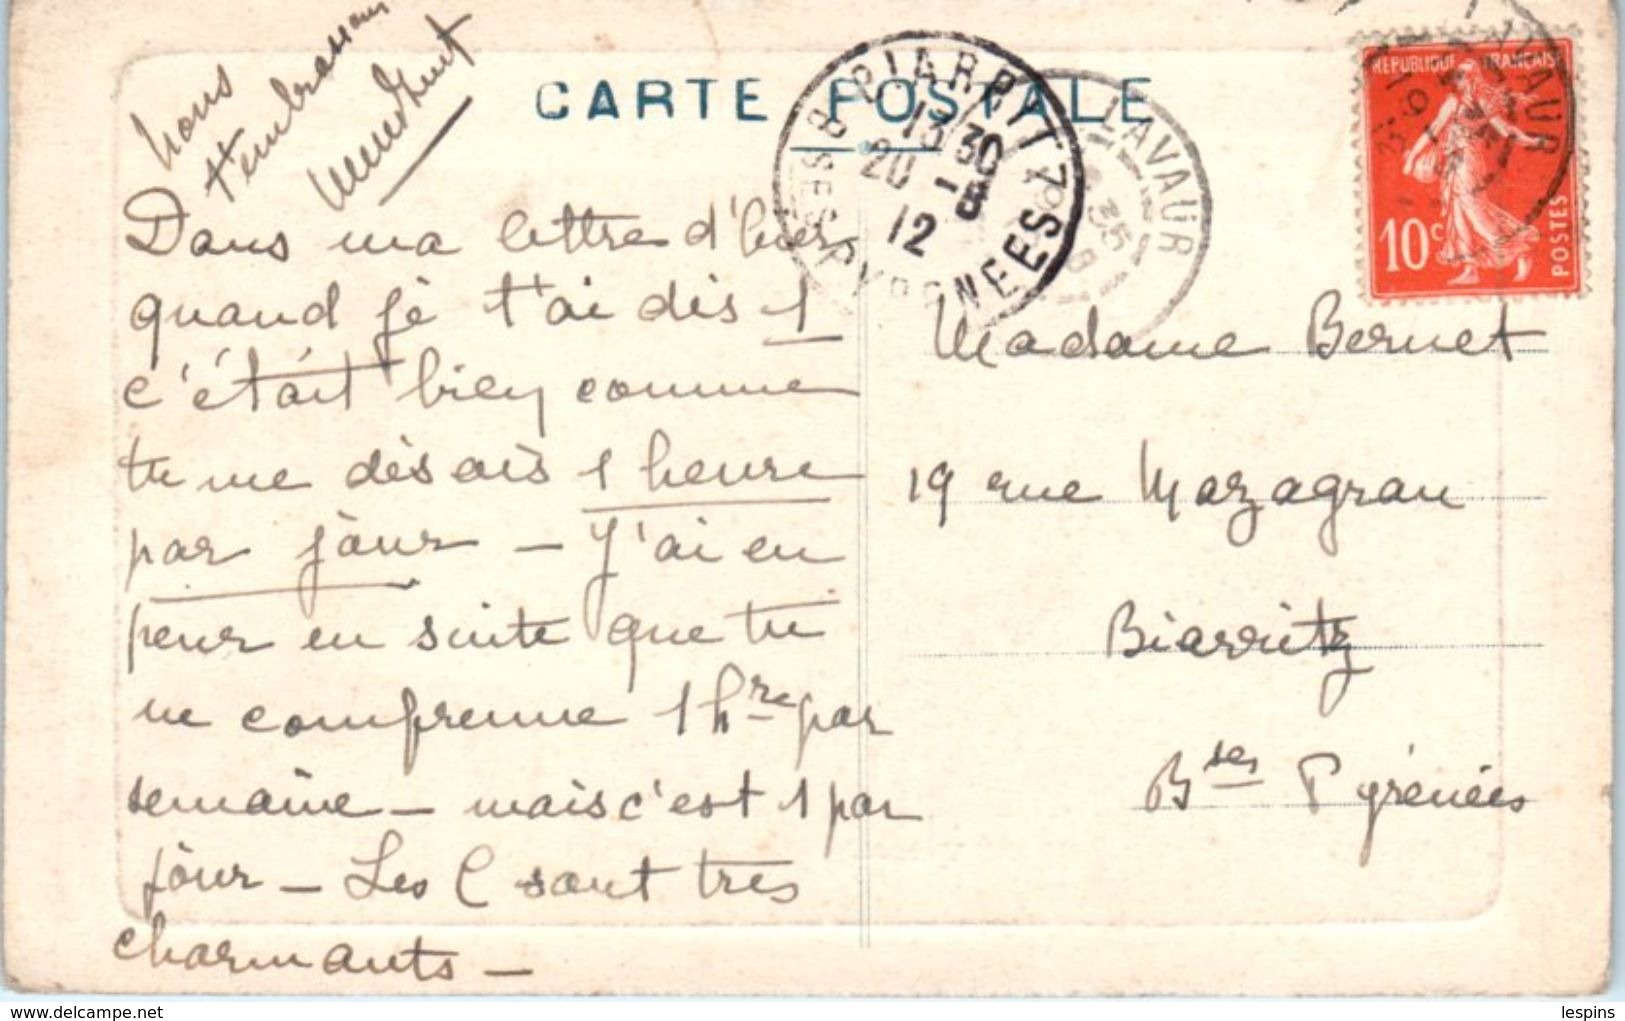 nous
t'embrassons
CARTE POSTALE
Dans ma lettre d'hier
quand je t'ai dis 1
c'était bien comme
tu me disais 1 heure
par jour — J'ai eu
peur en suite que tu
ne comprenne 1 hre par
semaine — mais c'est 1 par
jour — Les C sont tres
charmants —
BIARRITZ
13 30
20 - 8
12
BSES PYRENEES
LAVAUR
35
REPUBLIQUE FRANCAISE
10c
POSTES
Madame Bernet
19 rue Mazagran
Biarritz
Bses Pyrénées
delcampe.net
lespins